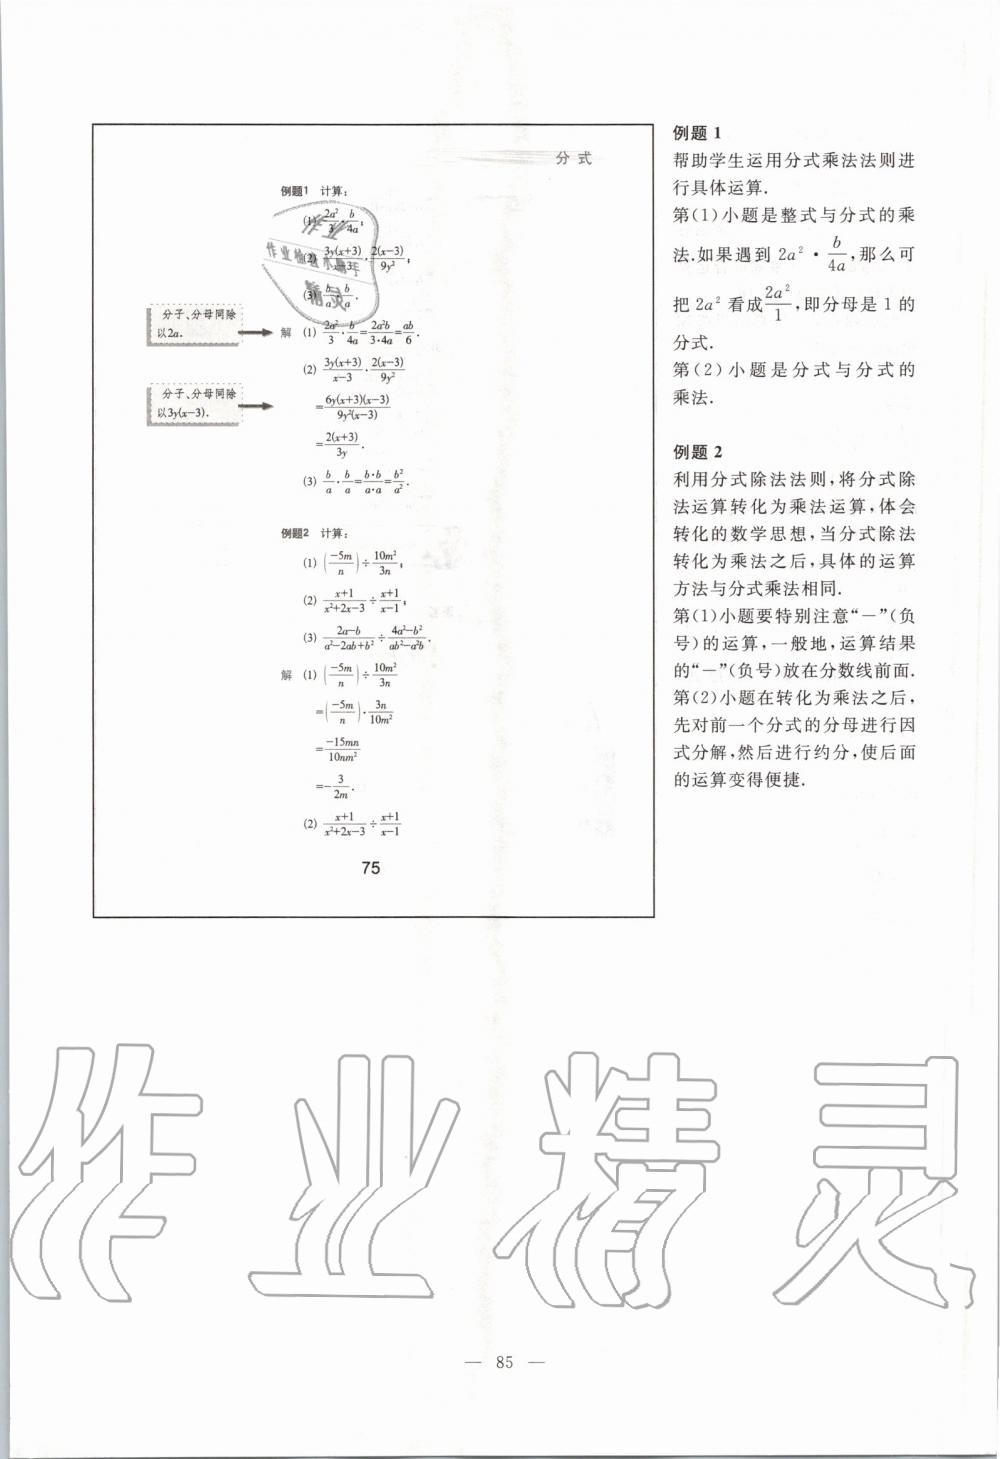 分式
例题1 计算：
(1) 2a²/3 · b/4a；
(2) 3y(x+3)/x−3 · 2(x−3)/9y²；
(3) b/a · b/a.
分子、分母同除
以2a.
解 (1) 2a²/3 · b/4a = 2a²b/3·4a = ab/6.
(2) 3y(x+3)/x−3 · 2(x−3)/9y²
分子、分母同除
以3y(x−3).
= 6y(x+3)(x−3)/9y²(x−3)
= 2(x+3)/3y.
(3) b/a · b/a = b·b/a·a = b²/a².
例题2 计算：
(1) (−5m/n) ÷ 10m²/3n；
(2) x+1/x²+2x−3 ÷ x+1/x−1；
(3) 2a−b/a²−2ab+b² ÷ 4a²−b²/ab²−a²b.
解 (1) (−5m/n) ÷ 10m²/3n
= (−5m/n) · 3n/10m²
= −15mn/10nm²
= −3/2m.
(2) x+1/x²+2x−3 ÷ x+1/x−1
75
例题 1
帮助学生运用分式乘法法则进
行具体运算.
第(1)小题是整式与分式的乘
法.如果遇到 2a² · b/4a,那么可
把 2a² 看成 2a²/1,即分母是 1 的
分式.
第(2)小题是分式与分式的
乘法.
例题 2
利用分式除法法则,将分式除
法运算转化为乘法运算,体会
转化的数学思想,当分式除法
转化为乘法之后,具体的运算
方法与分式乘法相同.
第(1)小题要特别注意“－”(负
号)的运算,一般地,运算结果
的“－”(负号)放在分数线前面.
第(2)小题在转化为乘法之后,
先对前一个分式的分母进行因
式分解,然后进行约分,使后面
的运算变得便捷.
作业精灵
— 85 —